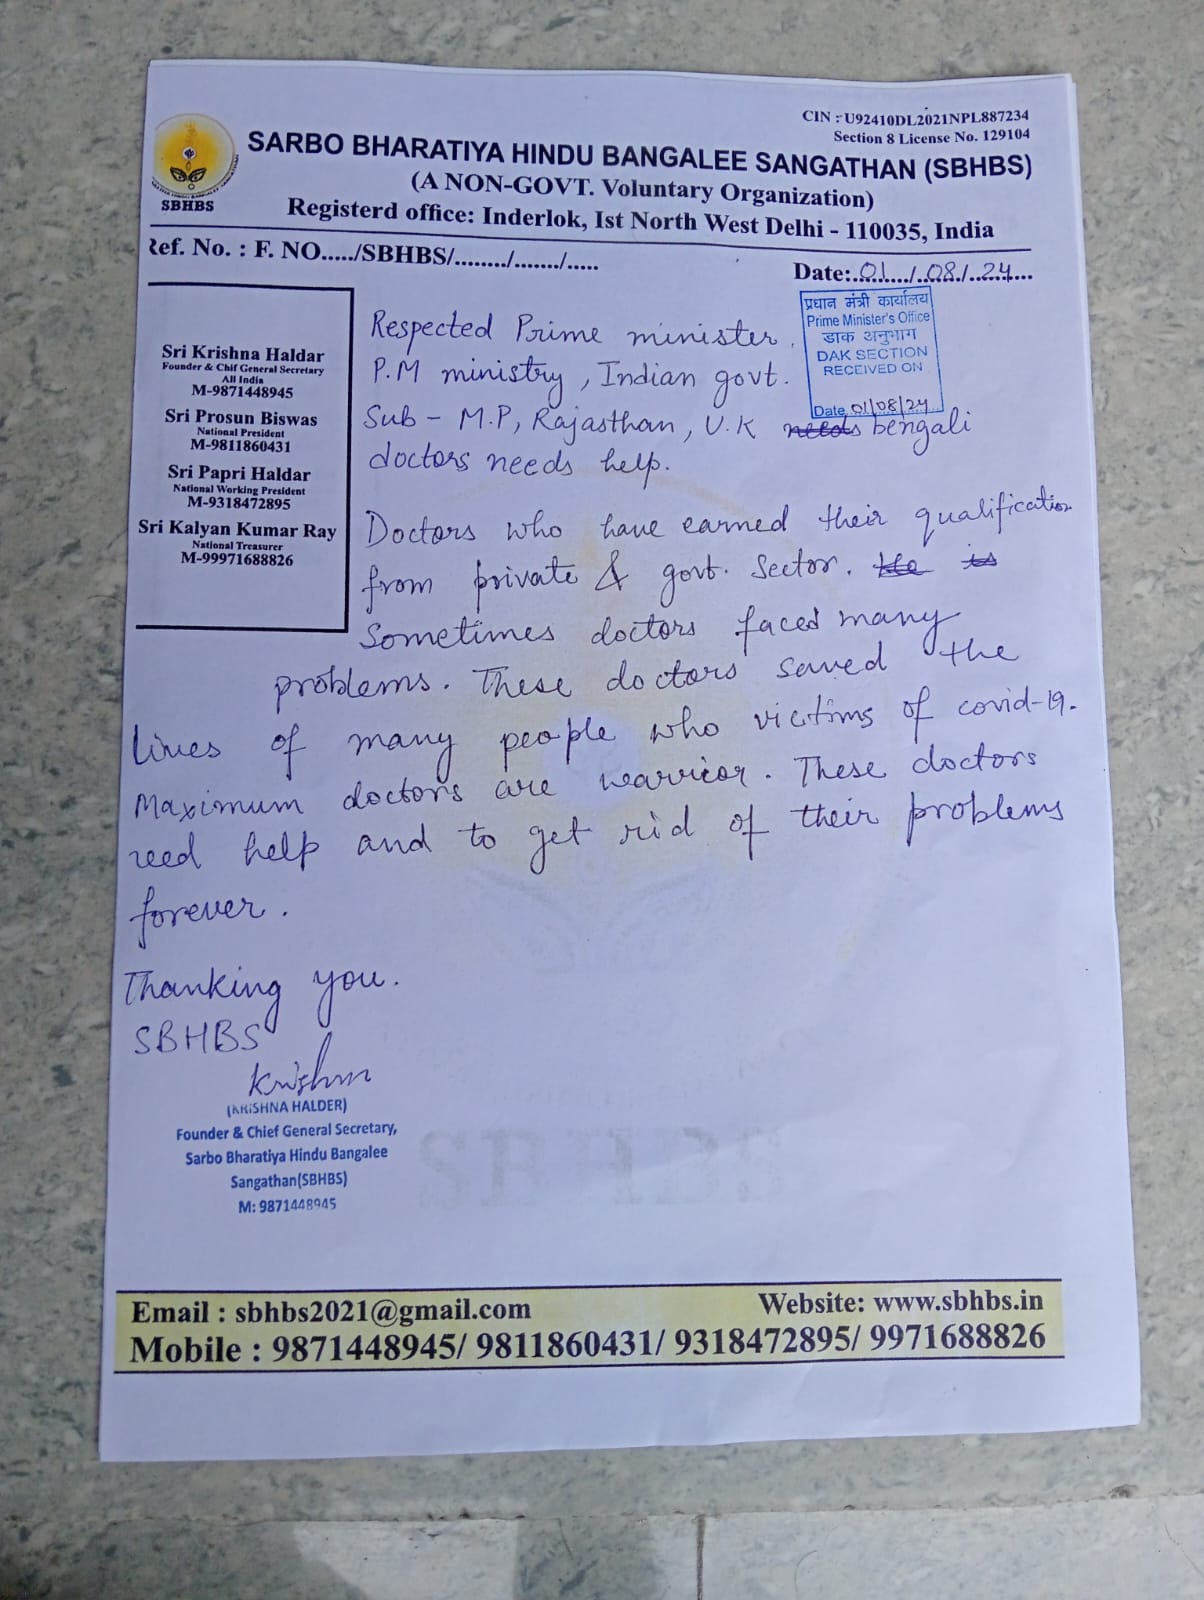 CIN : U92410DL2021NPL887234
Section 8 License No. 129104
SARBO BHARATIYA HINDU BANGALEE SANGATHAN (SBHBS)
(A NON-GOVT. Voluntary Organization)
SBHBS
Registerd office: Inderlok, Ist North West Delhi - 110035, India
Ref. No. : F. NO...../SBHBS/......../......./.....
Date:.01.../.08./..24...
प्रधान मंत्री कार्यालय
Prime Minister's Office
डाक अनुभाग
DAK SECTION
RECEIVED ON
Date 01/08/24
Sri Krishna Haldar
Founder & Chif General Secretary
All India
M-9871448945
Sri Prosun Biswas
National President
M-9811860431
Sri Papri Haldar
National Working President
M-9318472895
Sri Kalyan Kumar Ray
National Treasurer
M-99971688826
Respected Prime minister.
P.M ministry, Indian govt.
Sub - M.P, Rajasthan, U.K needs bengali
doctors needs help.
Doctors who have earned their qualification
from private & govt. Sector. the is
Sometimes doctors faced many
problems. These doctors saved the
lives of many people who victims of covid-19.
Maximum doctors are warrior. These doctors
need help and to get rid of their problems
forever.
Thanking you.
SBHBS
Krishna
(KRISHNA HALDER)
Founder & Chief General Secretary,
Sarbo Bharatiya Hindu Bangalee
Sangathan(SBHBS)
M: 9871448945
SBHBS
Email : sbhbs2021@gmail.com
Website: www.sbhbs.in
Mobile : 9871448945/ 9811860431/ 9318472895/ 9971688826